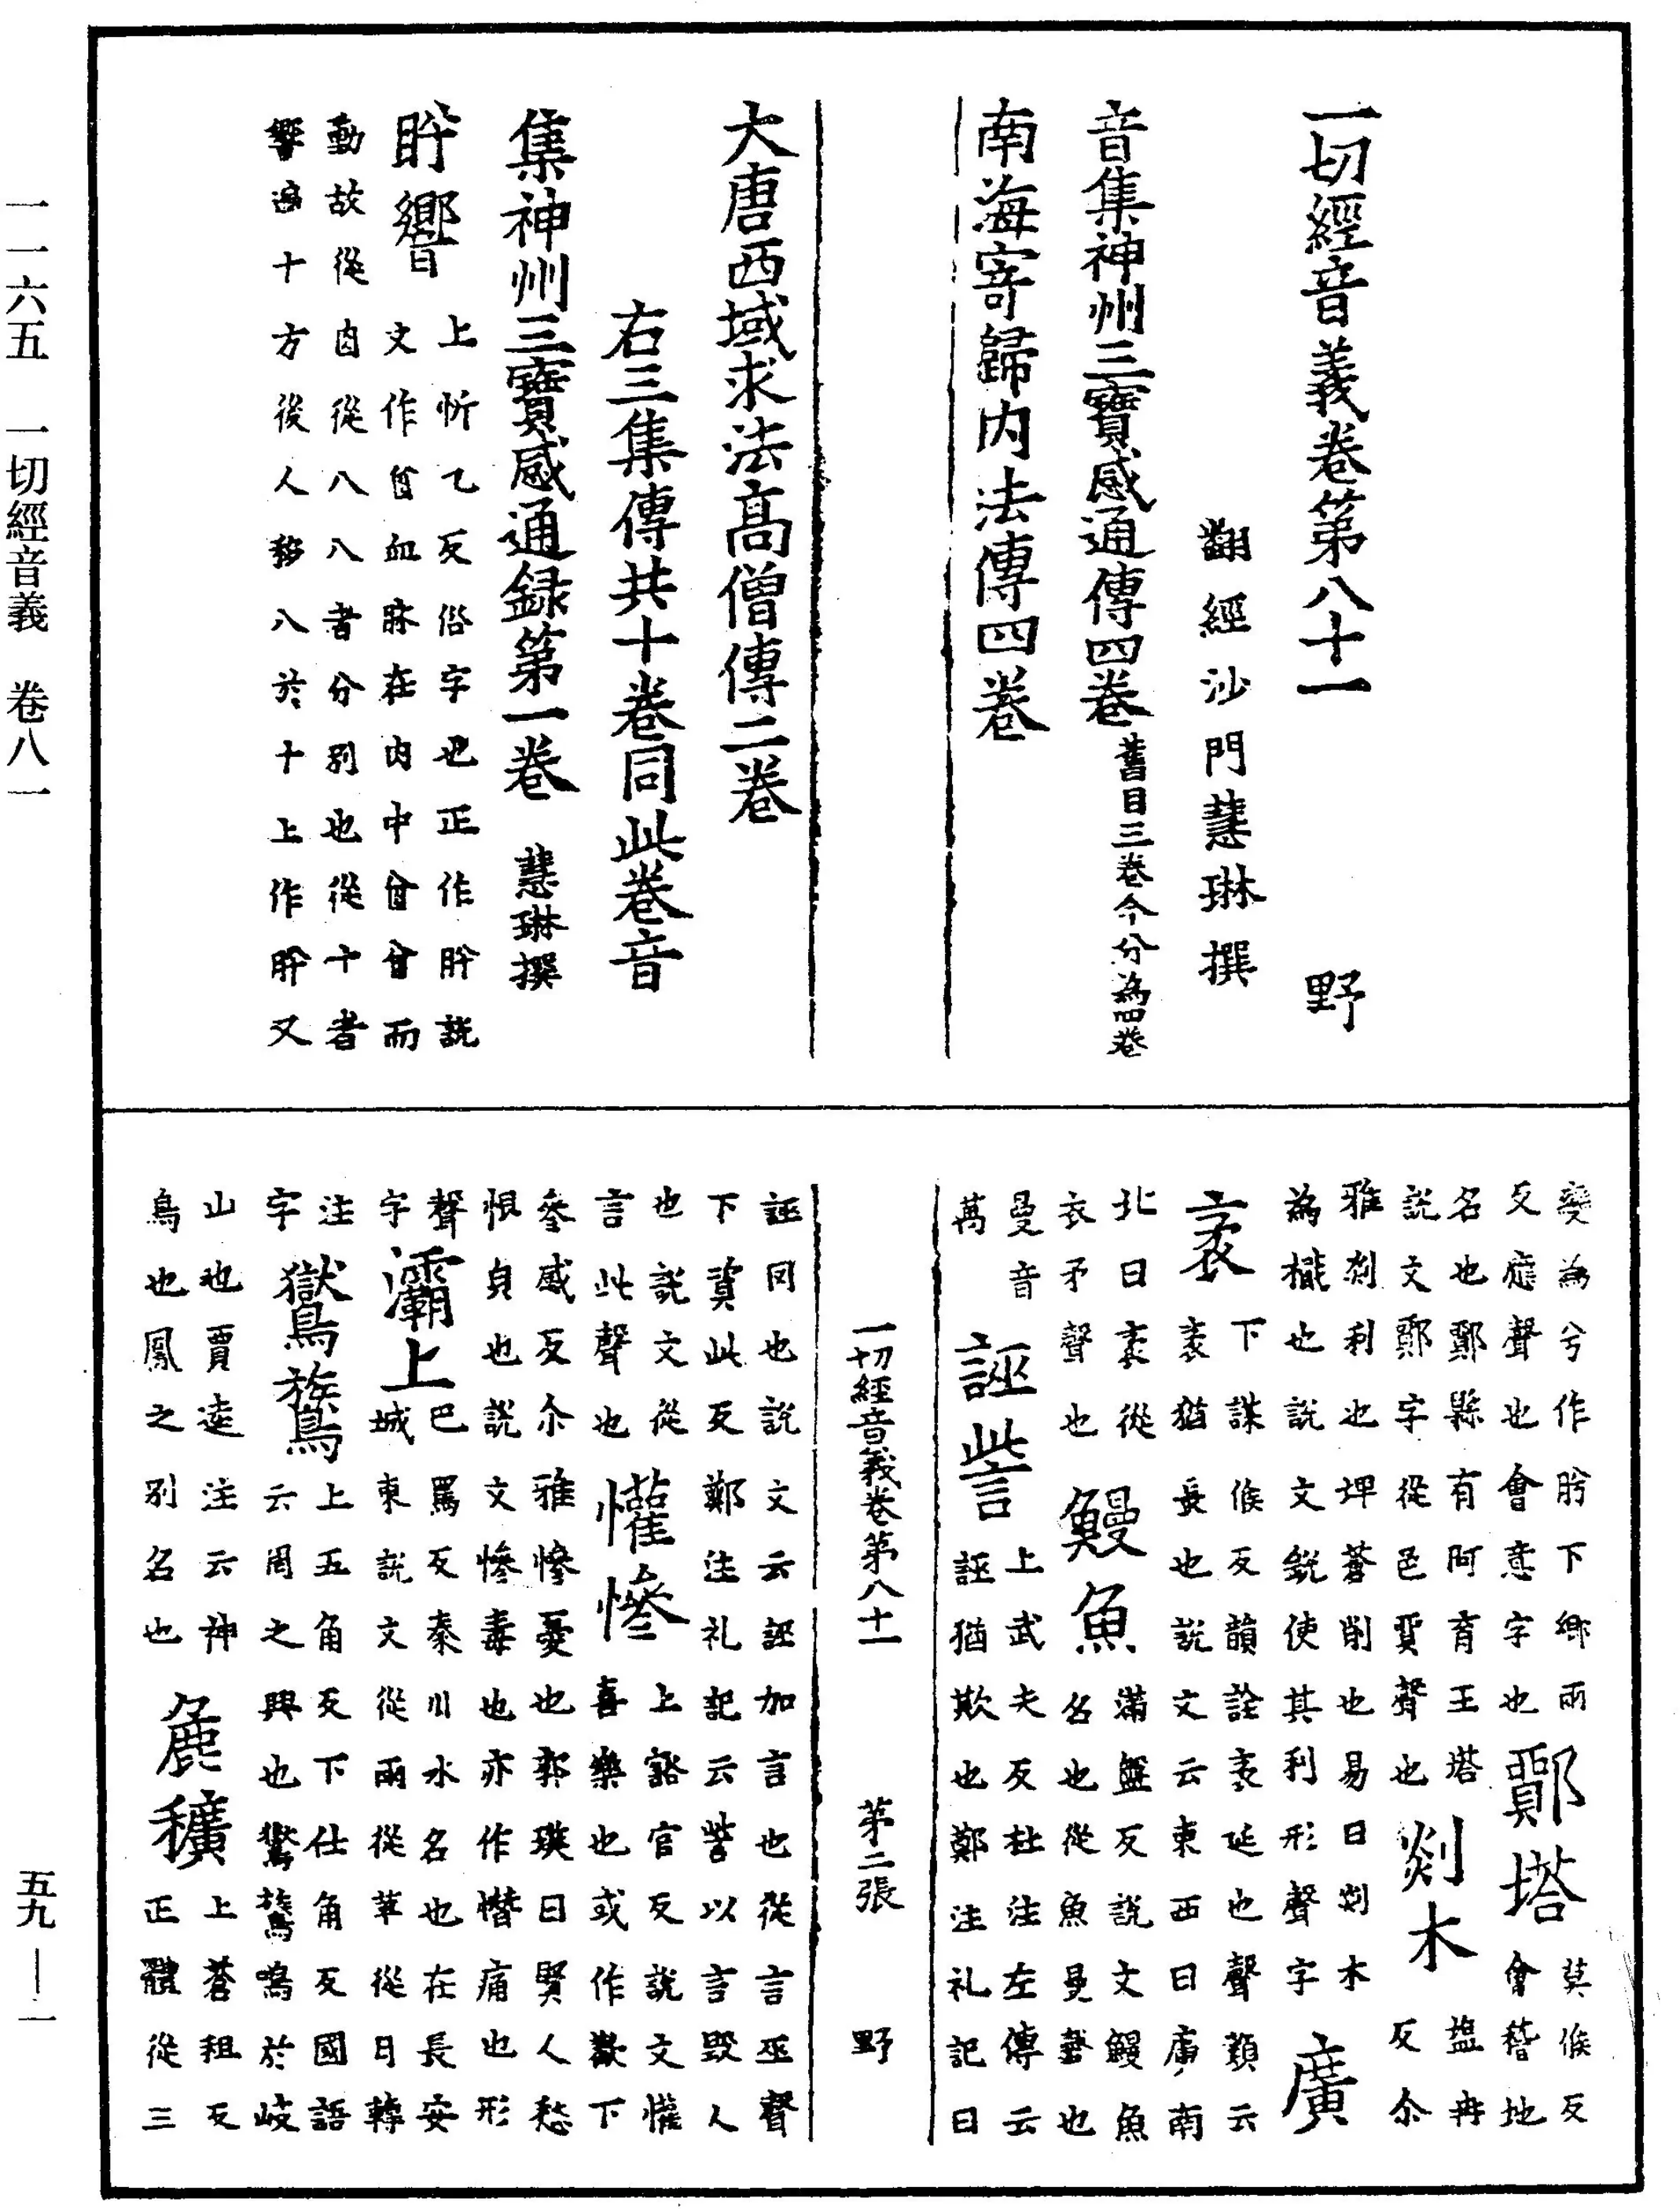 一切經音義卷第八十一 野
翻經沙門慧琳撰
音集神州三寶感通傳四卷舊目三卷今分為四卷
南海寄歸內法傳四卷
大唐西域求法高僧傳二卷
右三集傳共十卷同此卷音
集神州三寶感通録第一卷 慧琳撰
肹嚮
上忻乙反俗字也正作肸說
文作䏌血脉在肉中䏌䏌而
動故從䏌從八八者分別也從十者
響遍十方後人移八於十上作肸又
變為兮作肹下鄉兩
反應聲也會意字也
鄮塔
莫候反會稽地
名也鄮縣有阿育王塔
說文鄮字從邑貿聲也
剡木
塩冉反尒
雅剡利也埤蒼削也易曰剡木
為檝也說文銳使其利形聲字
廣袤
下謀候反韻詮袤延也聲類云
袤猶長也說文云東西曰廣南
北曰袤從
衣矛聲也
鰻魚
滿盤反說文鰻魚
名也從魚曼聲也
曼音
萬
誣訾
上武夫反杜注左傳云
誣猶欺也鄭注礼記曰
一切經音義卷第八十一 第二張 野
誣罔也說文云誣加言也從言巫聲
下貲此反鄭注礼記云訾以言毀人
也說文從
言此聲也
懽慘
上豁官反說文懽
喜樂也或作歡下
參感反尒雅慘憂也郭璞曰賢人愁
恨皃也說文慘毒也亦作憯痛也形
聲
字
灞上
巴罵反秦川水名也在長安
城東說文從雨從革從月轉
注
字
鸑鷟
上五角反下仕角反國語
云周之興也鸑鷟鳴於岐
山也賈逵注云神
鳥也鳳之別名也
麁穬
上蒼祖反
正體從三
一一六五 一切經音義 卷八一
五九—一